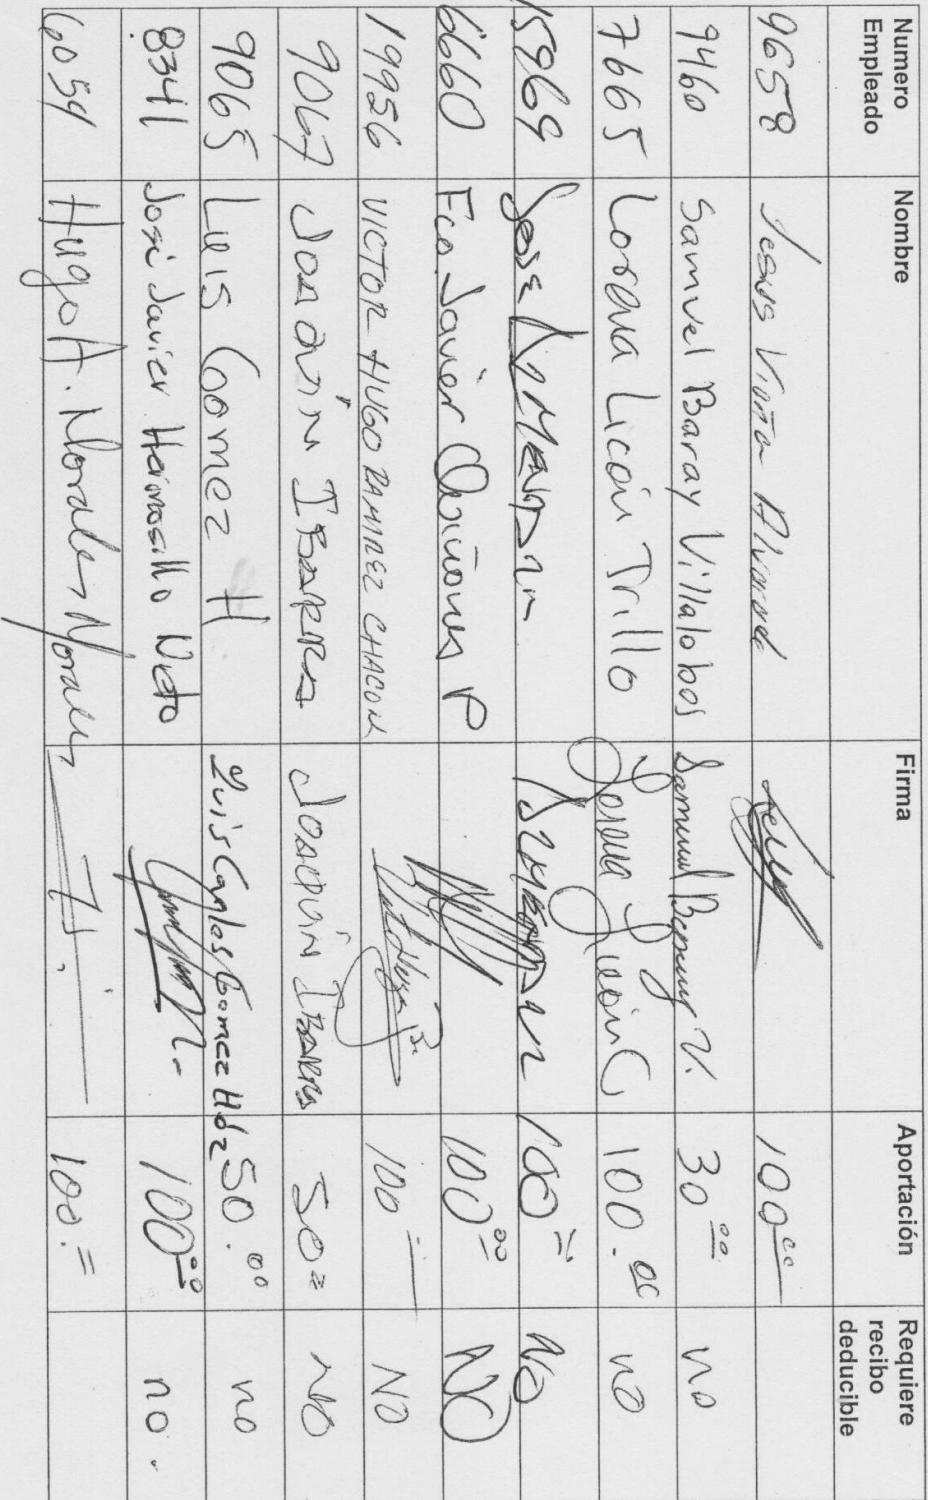 Numero Empleado Nombre Firma Aportación Requiere recibo deducible
9658 Jesus Viaña 100.00
9460 Samuel Baray Villalobos Samuel Baray V. 30.00 no
7665 Lorena Licón Trillo Lorena Licón 100.00 no
15969 Jose 100= No
6660 Fco. Javier Quiñones P 100.00 NO
19956 VICTOR HUGO RAMIREZ CHACON 100= NO
9067 JOAQUÍN IBARRA JOAQUÍN IBARRA 50= NO
9065 Luis Gomez H Luis Carlos Gomez Hdz 50.00 no
8341 José Javier Hermosillo Nieto 100.00 no.
6059 Hugo A. Morales Morales 100.=